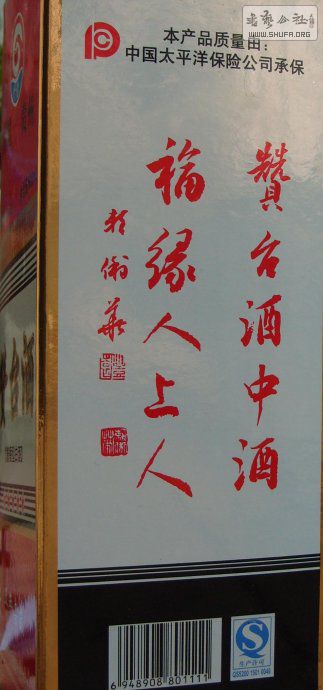 书艺公社
WWW.SHUFA.ORG
本产品质量由:
中国太平洋保险公司承保
赞台酒中酒
福缘人上人
台酒
6 948908 801111
QS
生产许可
QS5200 1501 0048